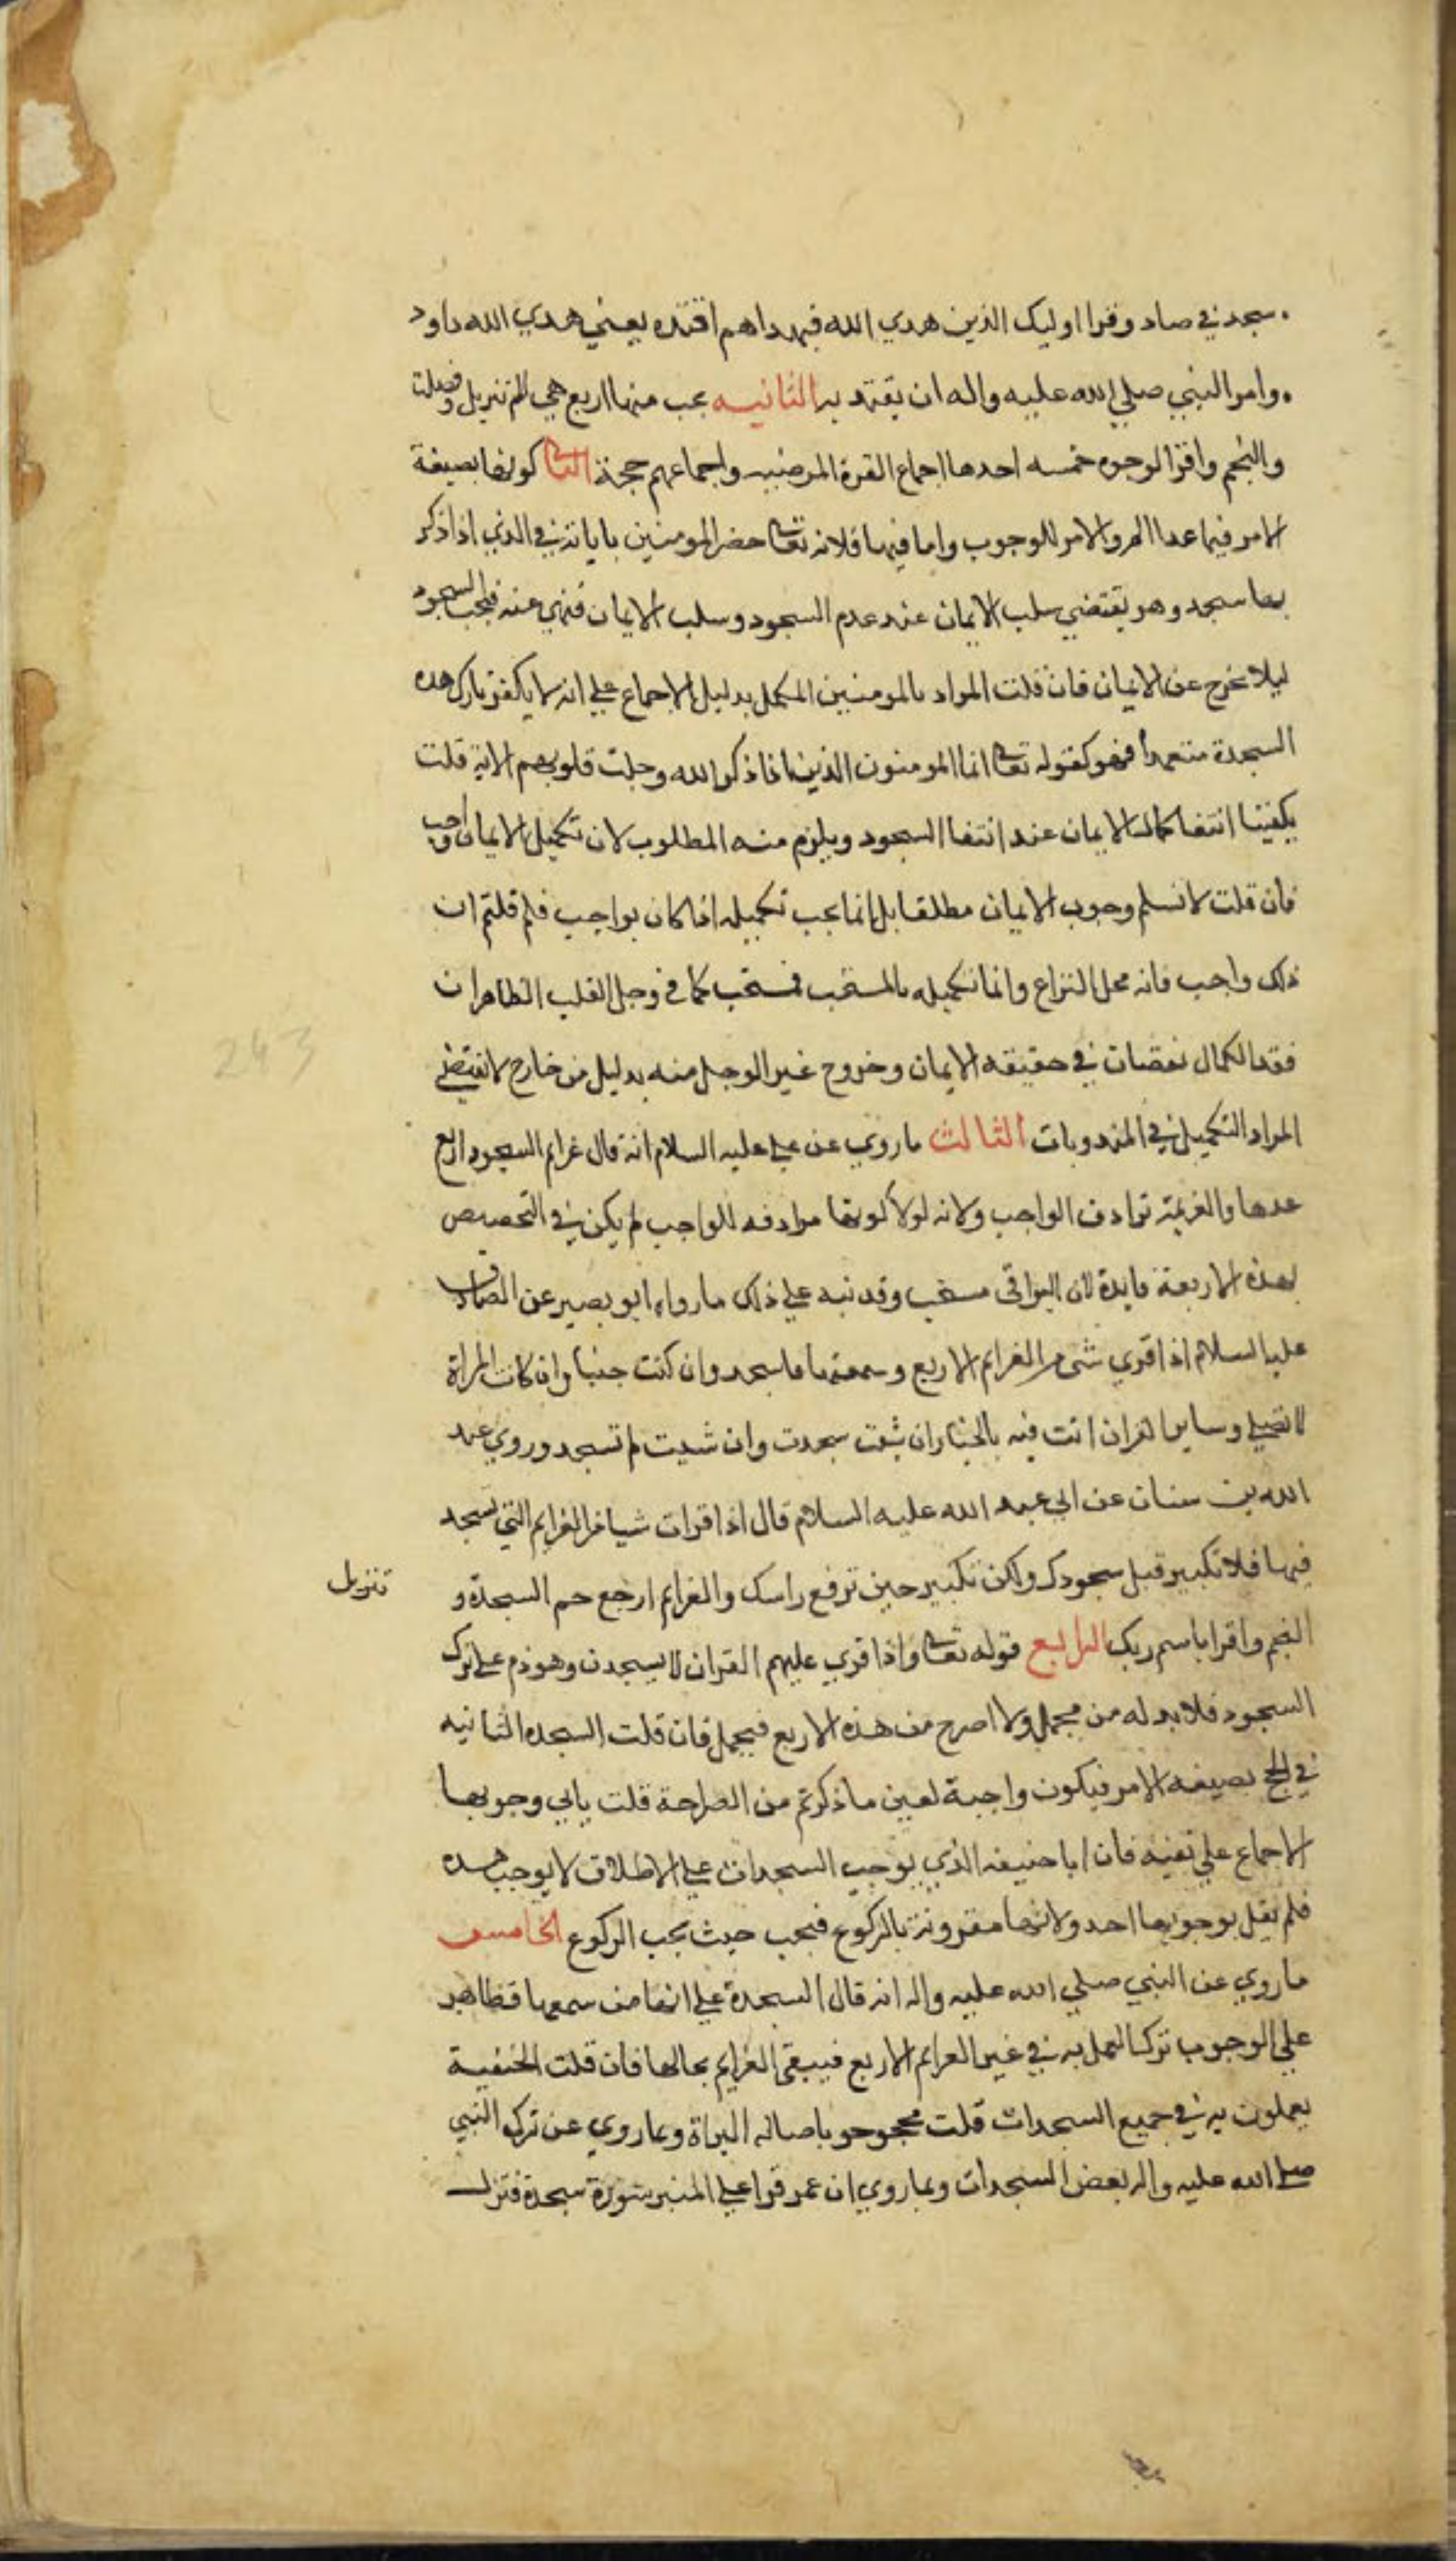 سجد في صاد وقرا اوليك الذين هدي الله فبهداهم اقتده يعني هدي الله داود
وامر النبي صلي الله عليه واله ان يقتد به الثانيه يجب منها اربع هي الم تنزيل وفصلت
والنجم واقرا لوجوه خمسه احدها اجماع الفرقة المرضيه واجماعهم حجة الثاني كونها بصيغة
الامر فيما عدا الم والامر للوجوب واما فيها فلانه تعالى حصر المومنين باياته في الذي اذا ذكر
بها سجد وهو يقتضي سلب الايمان عند عدم السجود وسلب الايمان منهي عنه فيجب السجود
ليلا يخرج عن الايمان فان قلت المراد بالمومنين المكمل بدليل الاجماع علي انه لا يكفر تارك هذه
السجدة متعمدا فهو كقوله تعالى انما المومنون الذين اذا ذكر الله وجلت قلوبهم الاية قلت
يكفينا انتفا كمال الايمان عند انتفا السجود ويلزم منه المطلوب لان تكميل الايمان واجب
فان قلت لا نسلم وجوب الايمان مطلقا بل انما يجب تكميله اذا كان بواجب فلم قلتم ان
ذلك واجب فانه محل النزاع وانما تكميله بالمستحب فمستحب كما في وجل القلب الظاهر ان
فقد الكمال نقصان في حقيقه الايمان وخروج غير الوجل منه بدليل من خارج لا يقتضي
المراد التكميل في المندوبات الثالث ما روي عن علي عليه السلام انه قال عزايم السجود اربع
عدها والعزيمة ترادف الواجب ولانه لولا كونها مرادفه للواجب لم يكن في التخصيص
بهذه الاربعة فايدة لان البواقي مستحب وقد نبه علي ذلك ما رواه ابو بصير عن الصادق
عليه السلام اذا قري شي من العزايم الاربع وسمعتها فاسجد وان كنت جنبا وان كانت المراة
لا تصلي وساير القران انت فيه بالخيار ان شيت سجدت وان شيت لم تسجد وروي عبد
الله بن سنان عن ابي عبد الله عليه السلام قال اذا قرات شيا من العزايم التي تسجد
فيها فلا تكبير قبل سجودك ولكن تكبير حين ترفع راسك والعزايم اربع حم السجدة و
تنزيل
النجم واقرا باسم ربك الرابع قوله تعالى واذا قري عليهم القران لا يسجدن وهو ذم علي ترك
السجود فلا بد له من محمل ولا اصرح من هذه الاربع فيحمل فان قلت السجده الثانيه
في الحج بصيغه الامر فيكون واجبة لعين ما ذكرتم من الصراحة قلت يابي وجوبها
الاجماع علي نفيه فان ابا حنيفه الذي يوجب السجدات علي الاطلاق لا يوجب هذه
فلم يقل بوجوبها احد ولانها مقرونة بالركوع فيجب حيث يجب الركوع الخامس
ما روي عن النبي صلي الله عليه واله انه قال السجدة علي انها من سمعها فظاهر
علي الوجوب تركنا العمل به في غير العزايم الاربع فيبقي العزايم بحالها فان قلت الحنفية
يعملون به في جميع السجدات قلت محجوجو باصاله البراة وبما روي عن ترك النبي
صلي الله عليه واله بعض السجدات وبما روي ان عمر قرا علي المنبر بسورة سجدة فنزل
243